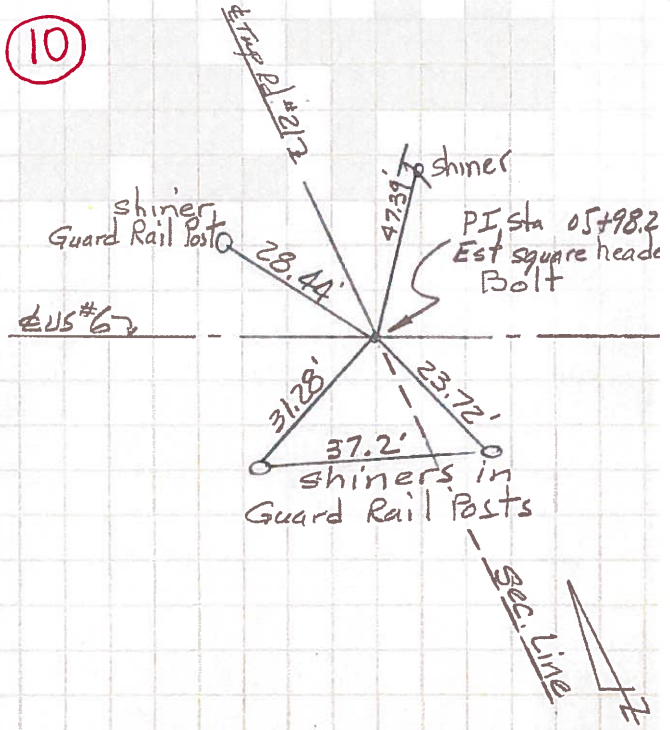 10
℄ Twp Rd. #217
shiner
47.39'
shiner
Guard Rail Post
28.44'
PI, Sta 05+98.2
Est square heade
Bolt
℄ US #6
31.28'
23.72'
37.2'
shiners in
Guard Rail Posts
Sec. Line